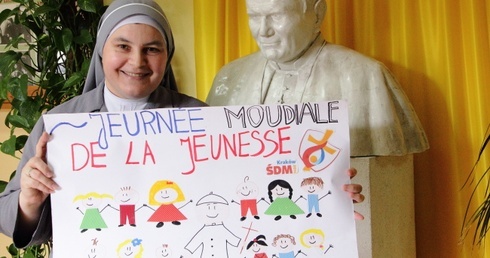 ~JEURNÉE MOUDIALE
DE LA JEUNESSE
Kraków
ŚDM